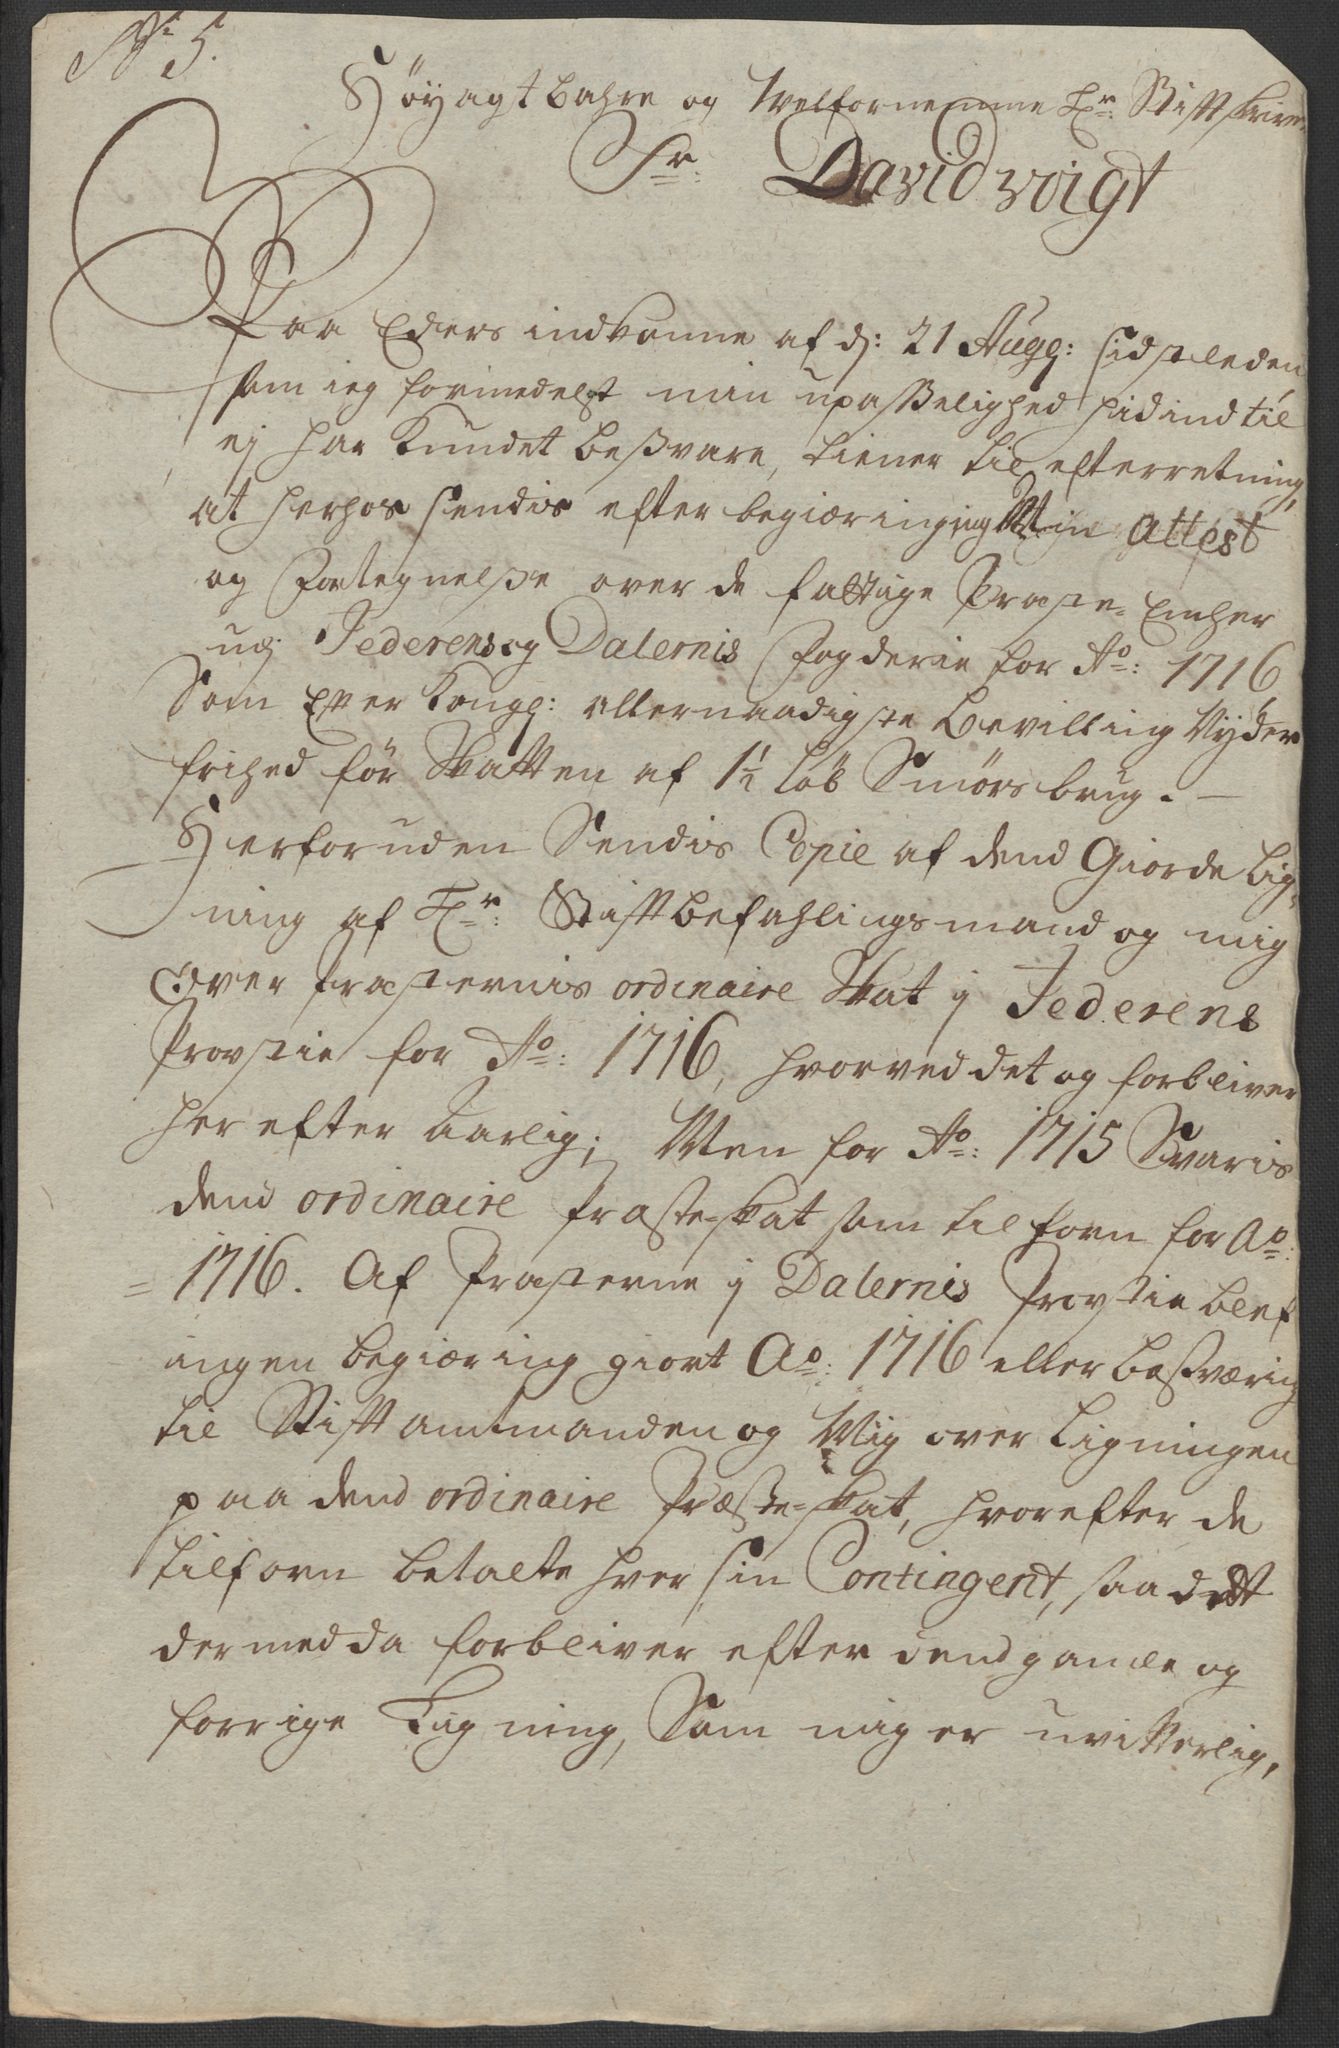 No: 5.
Høyagtbahre og Velfornemme Hr: Stiftskriver
Sr: David Voigt
Paa Eders indkomne af dj: 21 Augg: sidstleden
som ieg formedelst min upasselighed hidindtil
ej har kundet besvare, tiener til efterretning,
at herhos sendis efter begiæring Min Attest
og Fortegnelse over de fattige Præste-Encher
udj Jederens og Dalernis Fogderie for Ao: 1716
Som efter Kongl: allernaadigste bevilling Nyder
frihed for Skatten af 1½ løb Smørs brug. —
Herforuden Sendis Copie af dend Giorde Lig-
ning af Hr: Stiftbefahlingsmand og mig
Over Præsternis ordinaire Skat j Jederens
Provstie for Ao: 1716, hvorved det og forbliver
her efter Aarlig; Men for Ao: 1715 Svaris
dend ordinaire Præste-skat som tilforn for Ao:
= 1716. Af Præsterne j Dalernis Provstie blef
ingen begiæring giort Ao: 1716 eller besværing
til Stiftamtmanden og Mig over Ligningen
paa dend ordinaire Præste-skat, hvorefter de
tilforn betalte hver sin Contingent, saa det
dermed da forbliver efter dend gamle og
forrige Ligning, Som mig er uvitterlig,